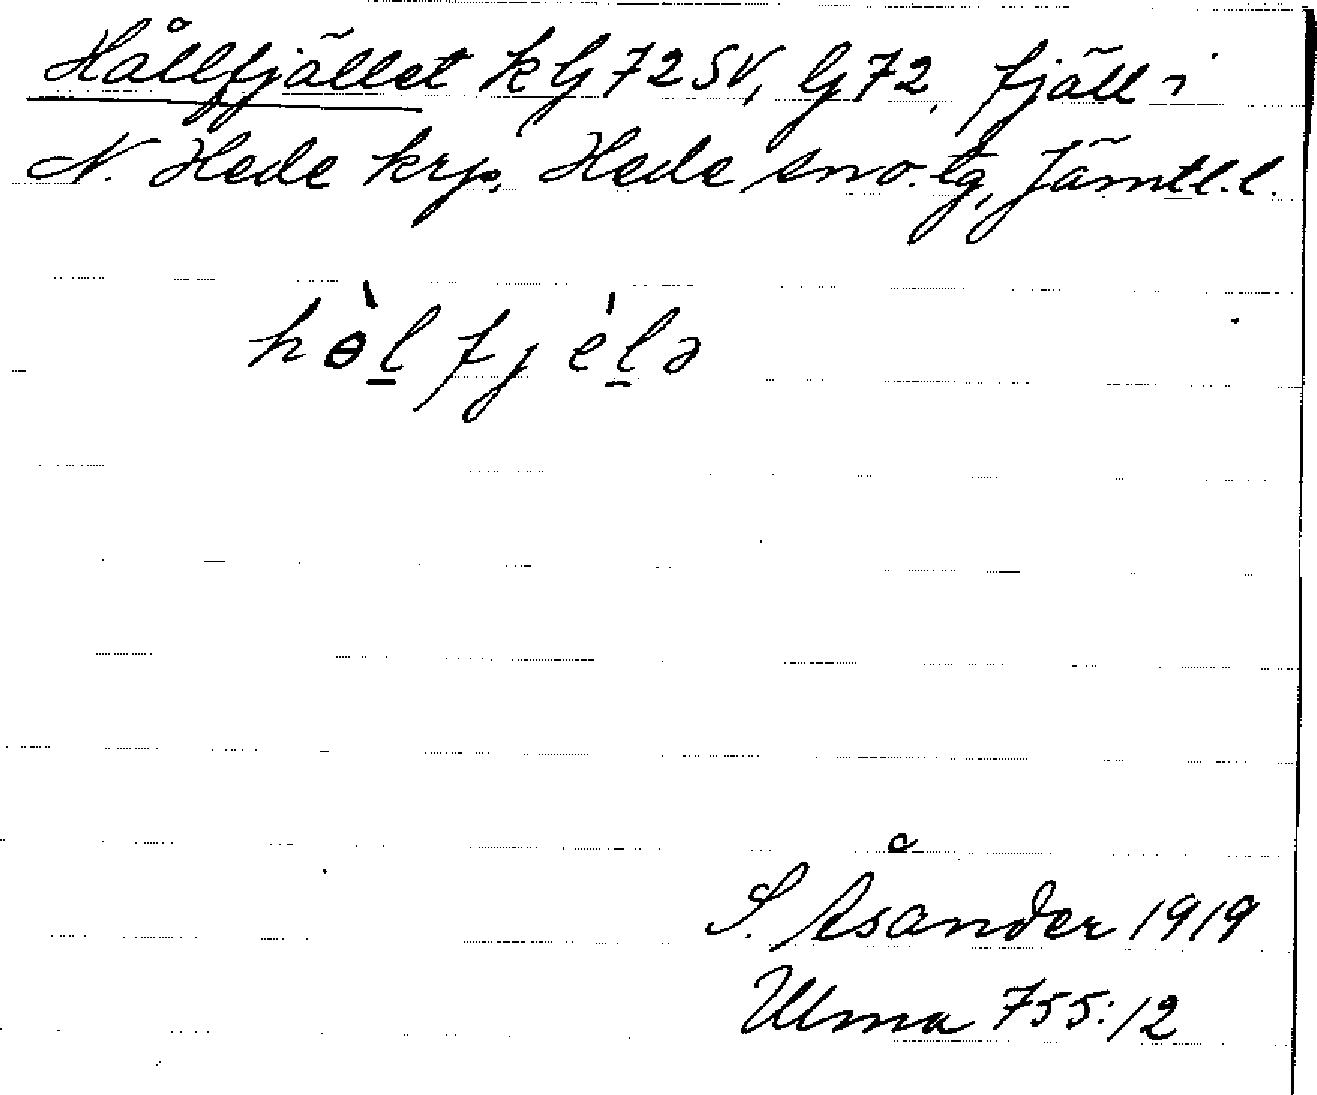 Hållfjället k G 72 SV, G 72, fjäll i
N. Hede krp, Hede sno. tg, Jämtl. l.
hɵ̀l̲fjèl̲ə
S. Åsander 1919
Ulma 755:12